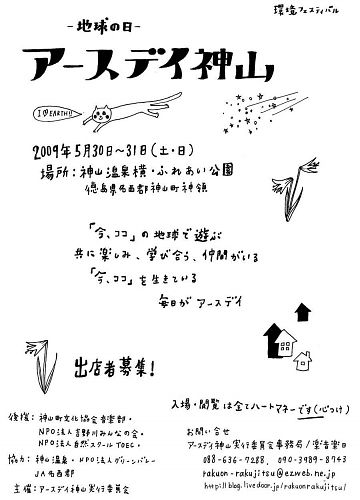 環境フェスティバル
-地球の日-
アースデイ神山
I@EARTH!!
2009年5月30日〜31日(土・日)
場所:神山温泉横・ふれあい公園
徳島県名西郡神山町神領
「今、ココ」の地球で遊ぶ
共に楽しみ、学び合う、仲間がいる
「今、ココ」を生きている
毎日が アースデイ
出店者募集!
入場・閲覧は全てハートマネーです(心つけ)
後援:神山町文化協会音楽部・
NPO法人吉野川みんなの会・
NPO法人自然スクールTOEC・
協力:神山温泉・NPO法人グリーンバレー
JA名西郡
主催:アースデイ神山実行委員会
お問い合せ
アースデイ神山実行委員会事務局/楽音楽日
088-636-7288、090-3989-8943
rakuon-rakujitsu@ezweb.ne.jp
http://blog.livedoor.jp/rakuonrakujitsu/